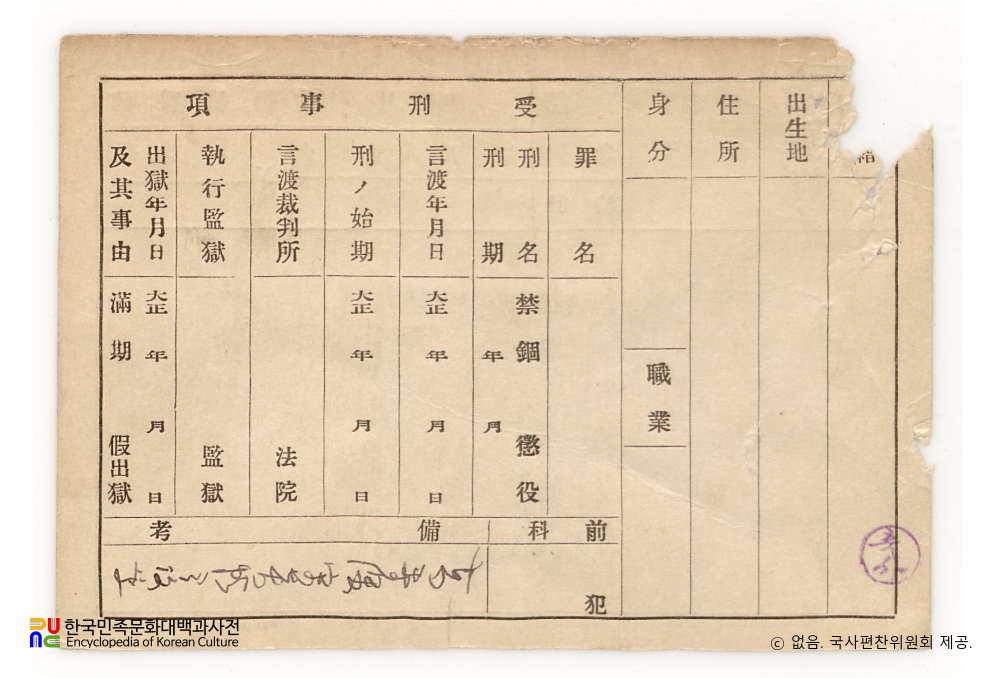 籍
出生地
住所
身分
職業
受刑事項
罪名
刑名
禁錮
懲役
刑期
年
月
言渡年月日
大正
年
月
日
刑ノ始期
大正
年
月
日
言渡裁判所
法院
執行監獄
監獄
出獄年月日
及其事由
大正
年
月
日
滿期
假出獄
前科
犯
備考
한국민족문화대백과사전
Encyclopedia of Korean Culture
ⓒ 없음. 국사편찬위원회 제공.